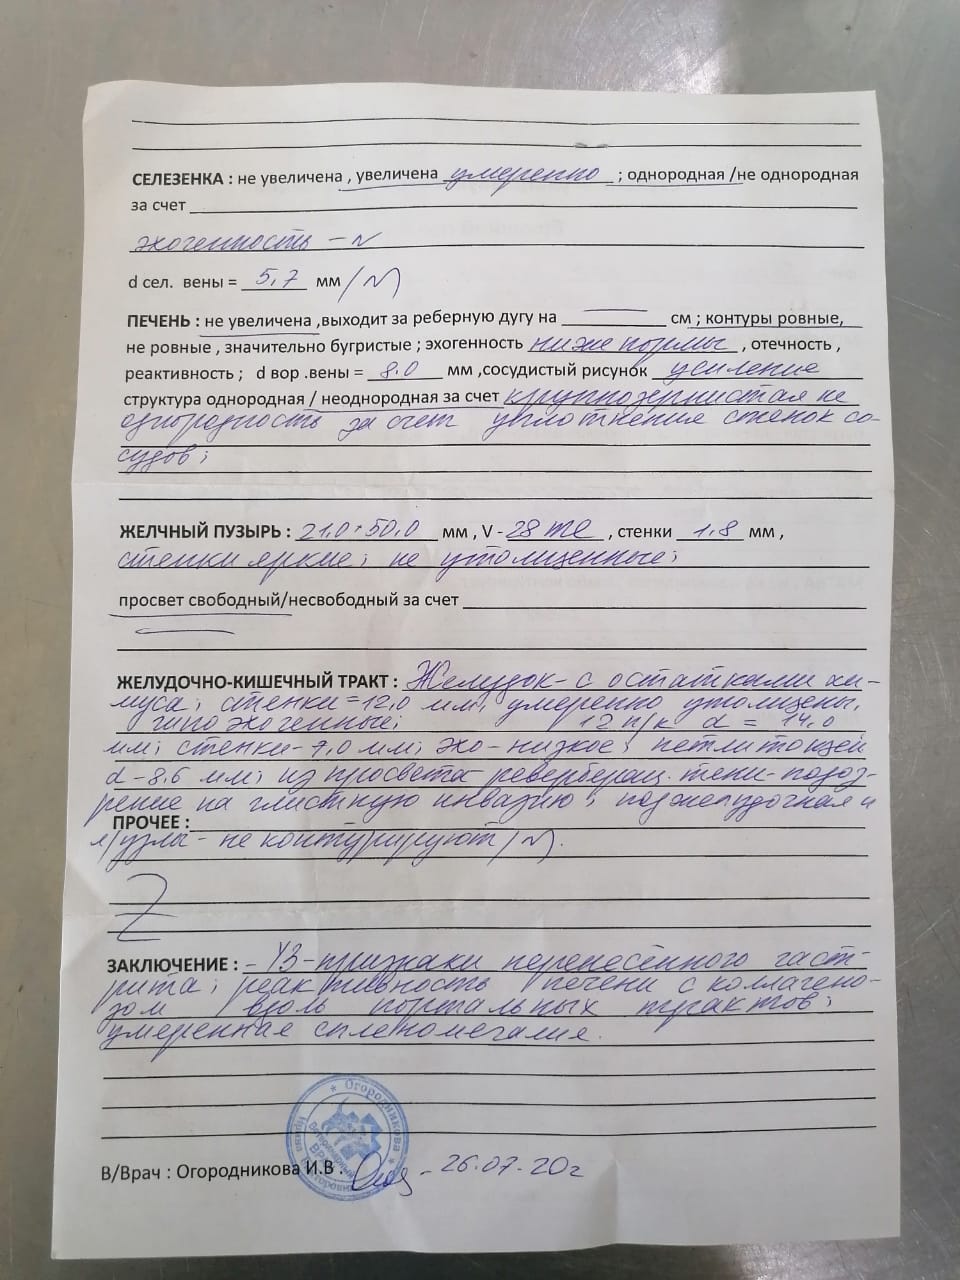 СЕЛЕЗЕНКА : не увеличена , увеличена умеренно ; однородная /не однородная
за счет
эхогенность - N
d сел. вены = 5,7 мм (N)
ПЕЧЕНЬ : не увеличена ,выходит за реберную дугу на — см ; контуры ровные,
не ровные , значительно бугристые ; эхогенность ниже нормы , отечность ,
реактивность ; d вор .вены = 8.0 мм ,сосудистый рисунок усиление
структура однородная / неоднородная за счет крупнозернистая не
однородность за счет уплотнения стенок со-
судов;
ЖЕЛЧНЫЙ ПУЗЫРЬ : 21.0 * 50.0 мм , V - 28 , стенки 1.8 мм ,
стенки яркие; не утолщенные;
просвет свободный/несвободный за счет
ЖЕЛУДОЧНО-КИШЕЧНЫЙ ТРАКТ : Желудок - с остатками хи-
муса; стенки = 12,0 мм, умеренно утолщены,
гипоэхогенные; 12 п/к d = 14,0
мм; стенки - 7,0 мм; эхо - низкое; петли тощей
d - 8.6 мм; из просвета реверберац. тени - подоз-
рение на глистную инвазию; поджелудочная и
ПРОЧЕЕ :
л/узлы - не контурируют (N).
Z
ЗАКЛЮЧЕНИЕ : - УЗ-признаки перенесённого гаст-
рита; реактивность печени с коллагено-
зом вдоль портальных трактов;
умеренная спленомегалия.
Огородникова
Ветеринарный
врач
В/Врач : Огородникова И.В . - 26.07.20г